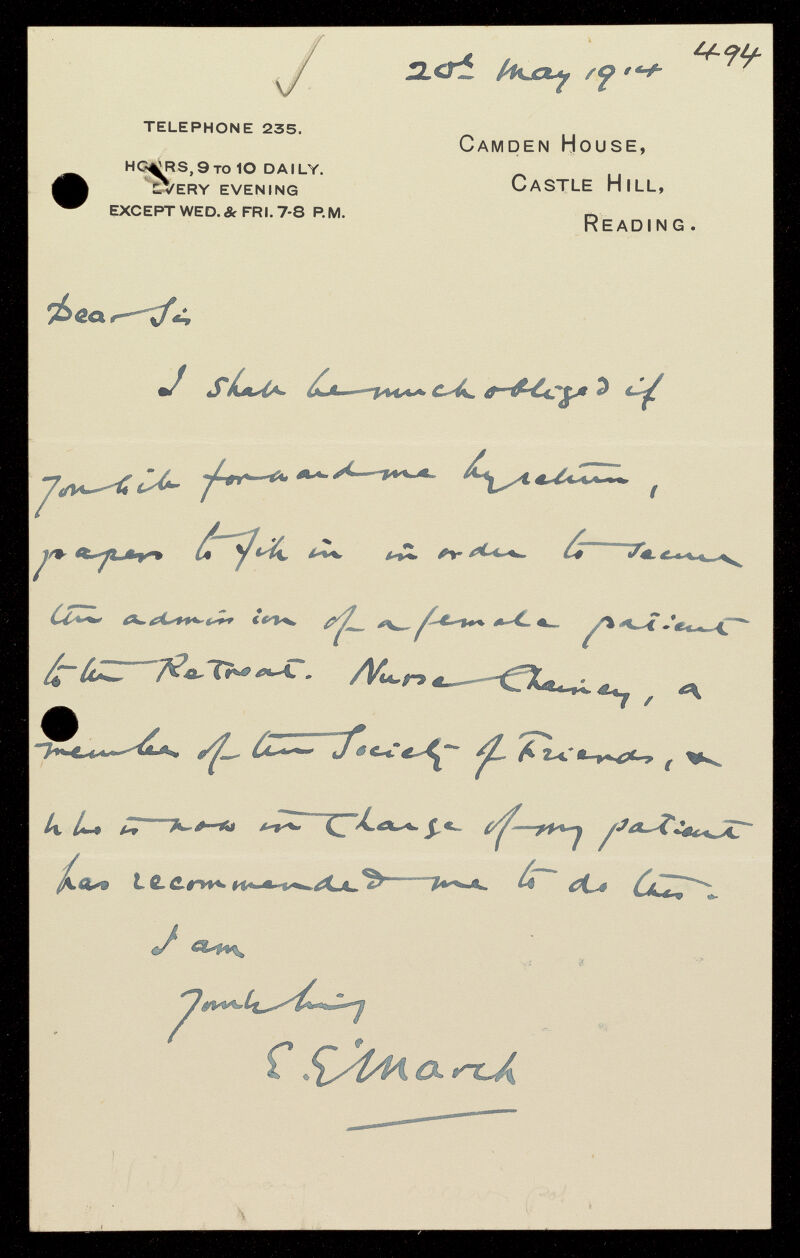 20th May 1914
494
TELEPHONE 235.
HOURS, 9 TO 10 DAILY.
EVERY EVENING
EXCEPT WED. & FRI. 7-8 P.M.
CAMDEN HOUSE,
CASTLE HILL,
READING.
Dear Sir
I shall be much obliged if
you will forward me by return,
papers to fill in in order to secure
the admission of a female patient
to the Retreat. Nurse Chainey, a
member of the Society of Friends, &
who is now in charge of my patient
has recommended me to do this.
I am
Yours truly
E. E. March